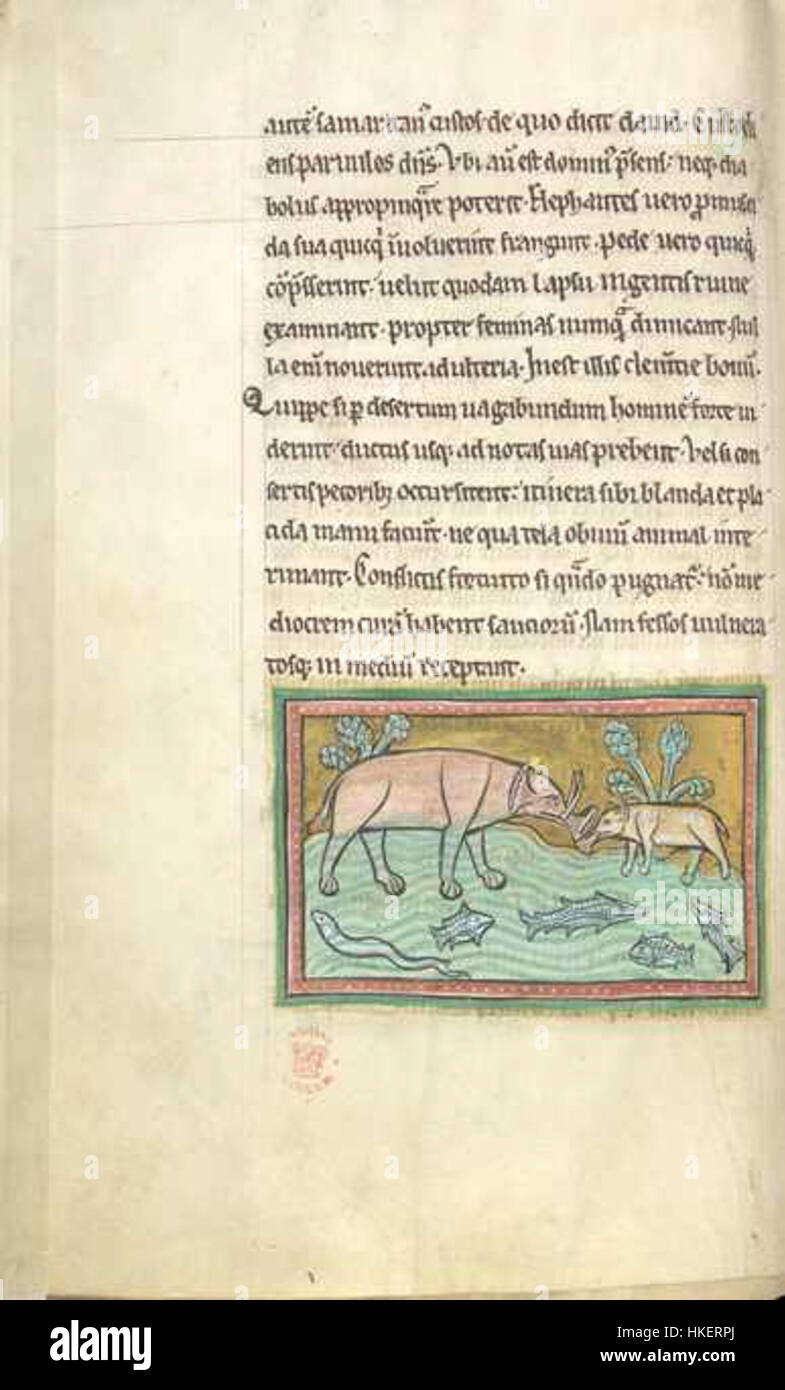 autē samaritan᷒ custos· de quo dicit dauid·
ens paruulos dn̄s· Vbi aū est domin᷒ p̄sens· neq; dia
bolus appropinq̄re poterit· Elephantes uero promusci
da sua quicq̄d inuoluerint frangunt· pede uero quicq̄d
cōp̄sserint· uelut quodam lapsu ingentis ruine
examinant· propter feminas numq̄ dimicant· nul
la eni nouerunt adulteria· Inest illis clementie bonū·
Quippe si p desertum uagabundum hominē forte ui
derint· ductus usq; ad notas uias prebent· Vel si con
sertis pecorib; occursitent· itinera sibi blanda et pla
cida manu faciunt· ne qua tela obuiū animal inte
rimant· Conflictu fortuito si qn̄do pugnat᷒· nō me
diocrem curā habent sauciorū· Nam fessos uulnera
tosq; in mediū receptant·
alamy
a
alamy
Image ID: HKERPJ
www.alamy.com